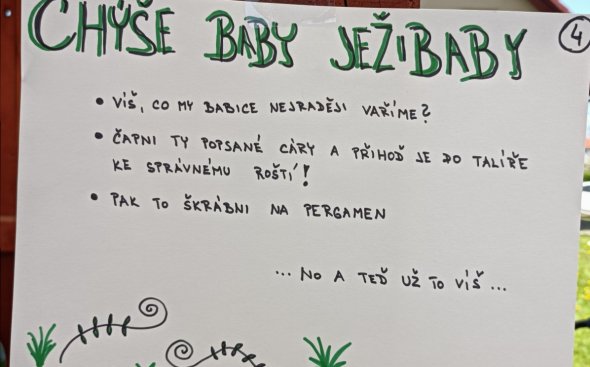 CHÝŠE BABY JEŽIBABY
4
• VÍŠ, CO MY BABICE NEJRADĚJI VAŘÍME?
• ČAPNI TY POPSANÉ CÁRY A PŘIHOĎ JE DO TALÍŘE
KE SPRÁVNÉMU ROŠTÍ!
• PAK TO ŠKRÁBNI NA PERGAMEN
... NO A TEĎ UŽ TO VÍŠ ...